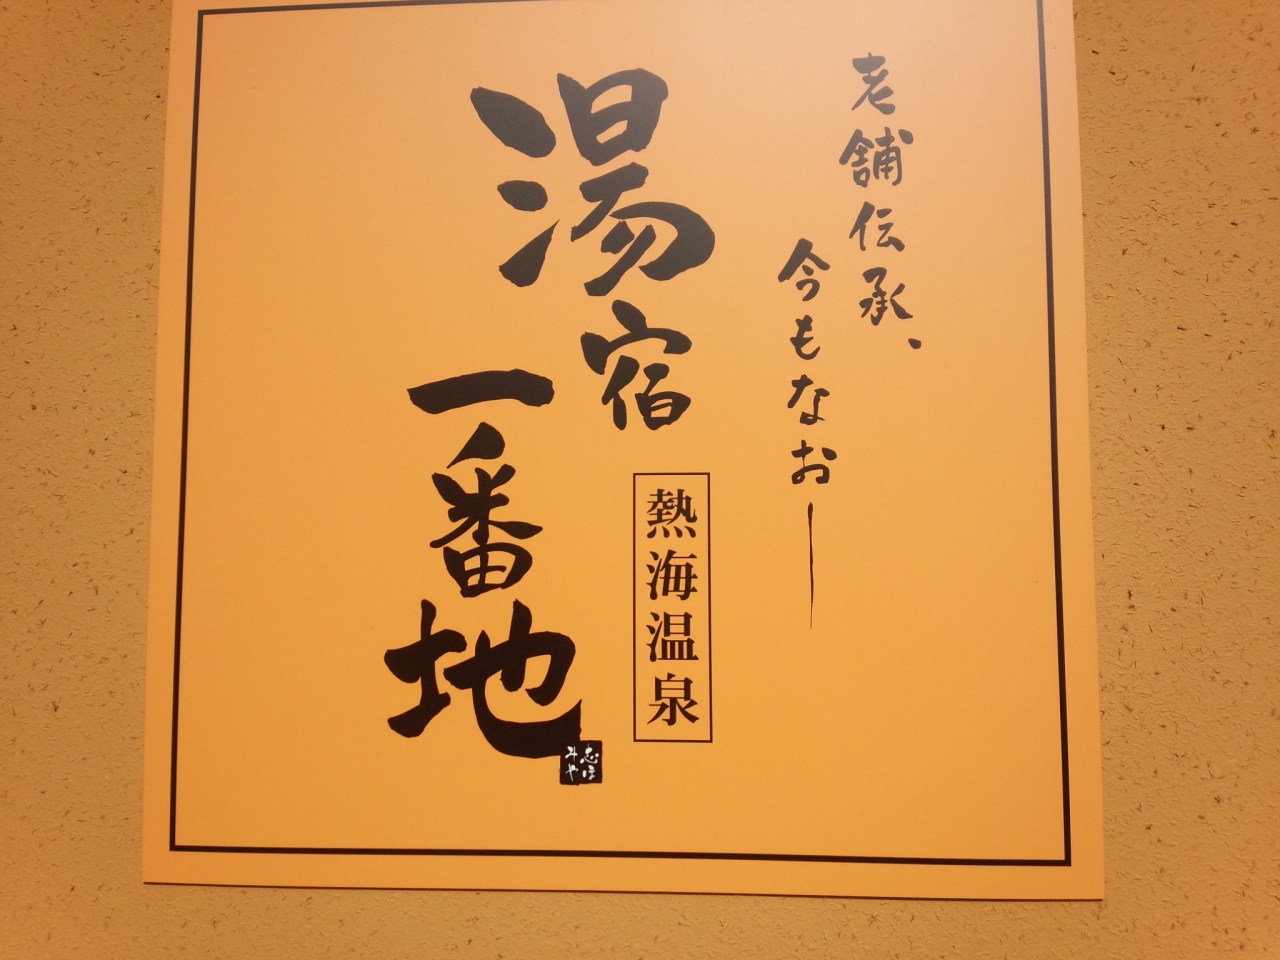 老舗伝承、
今もなお―
湯宿
一番地
熱海温泉
志ほ
みや